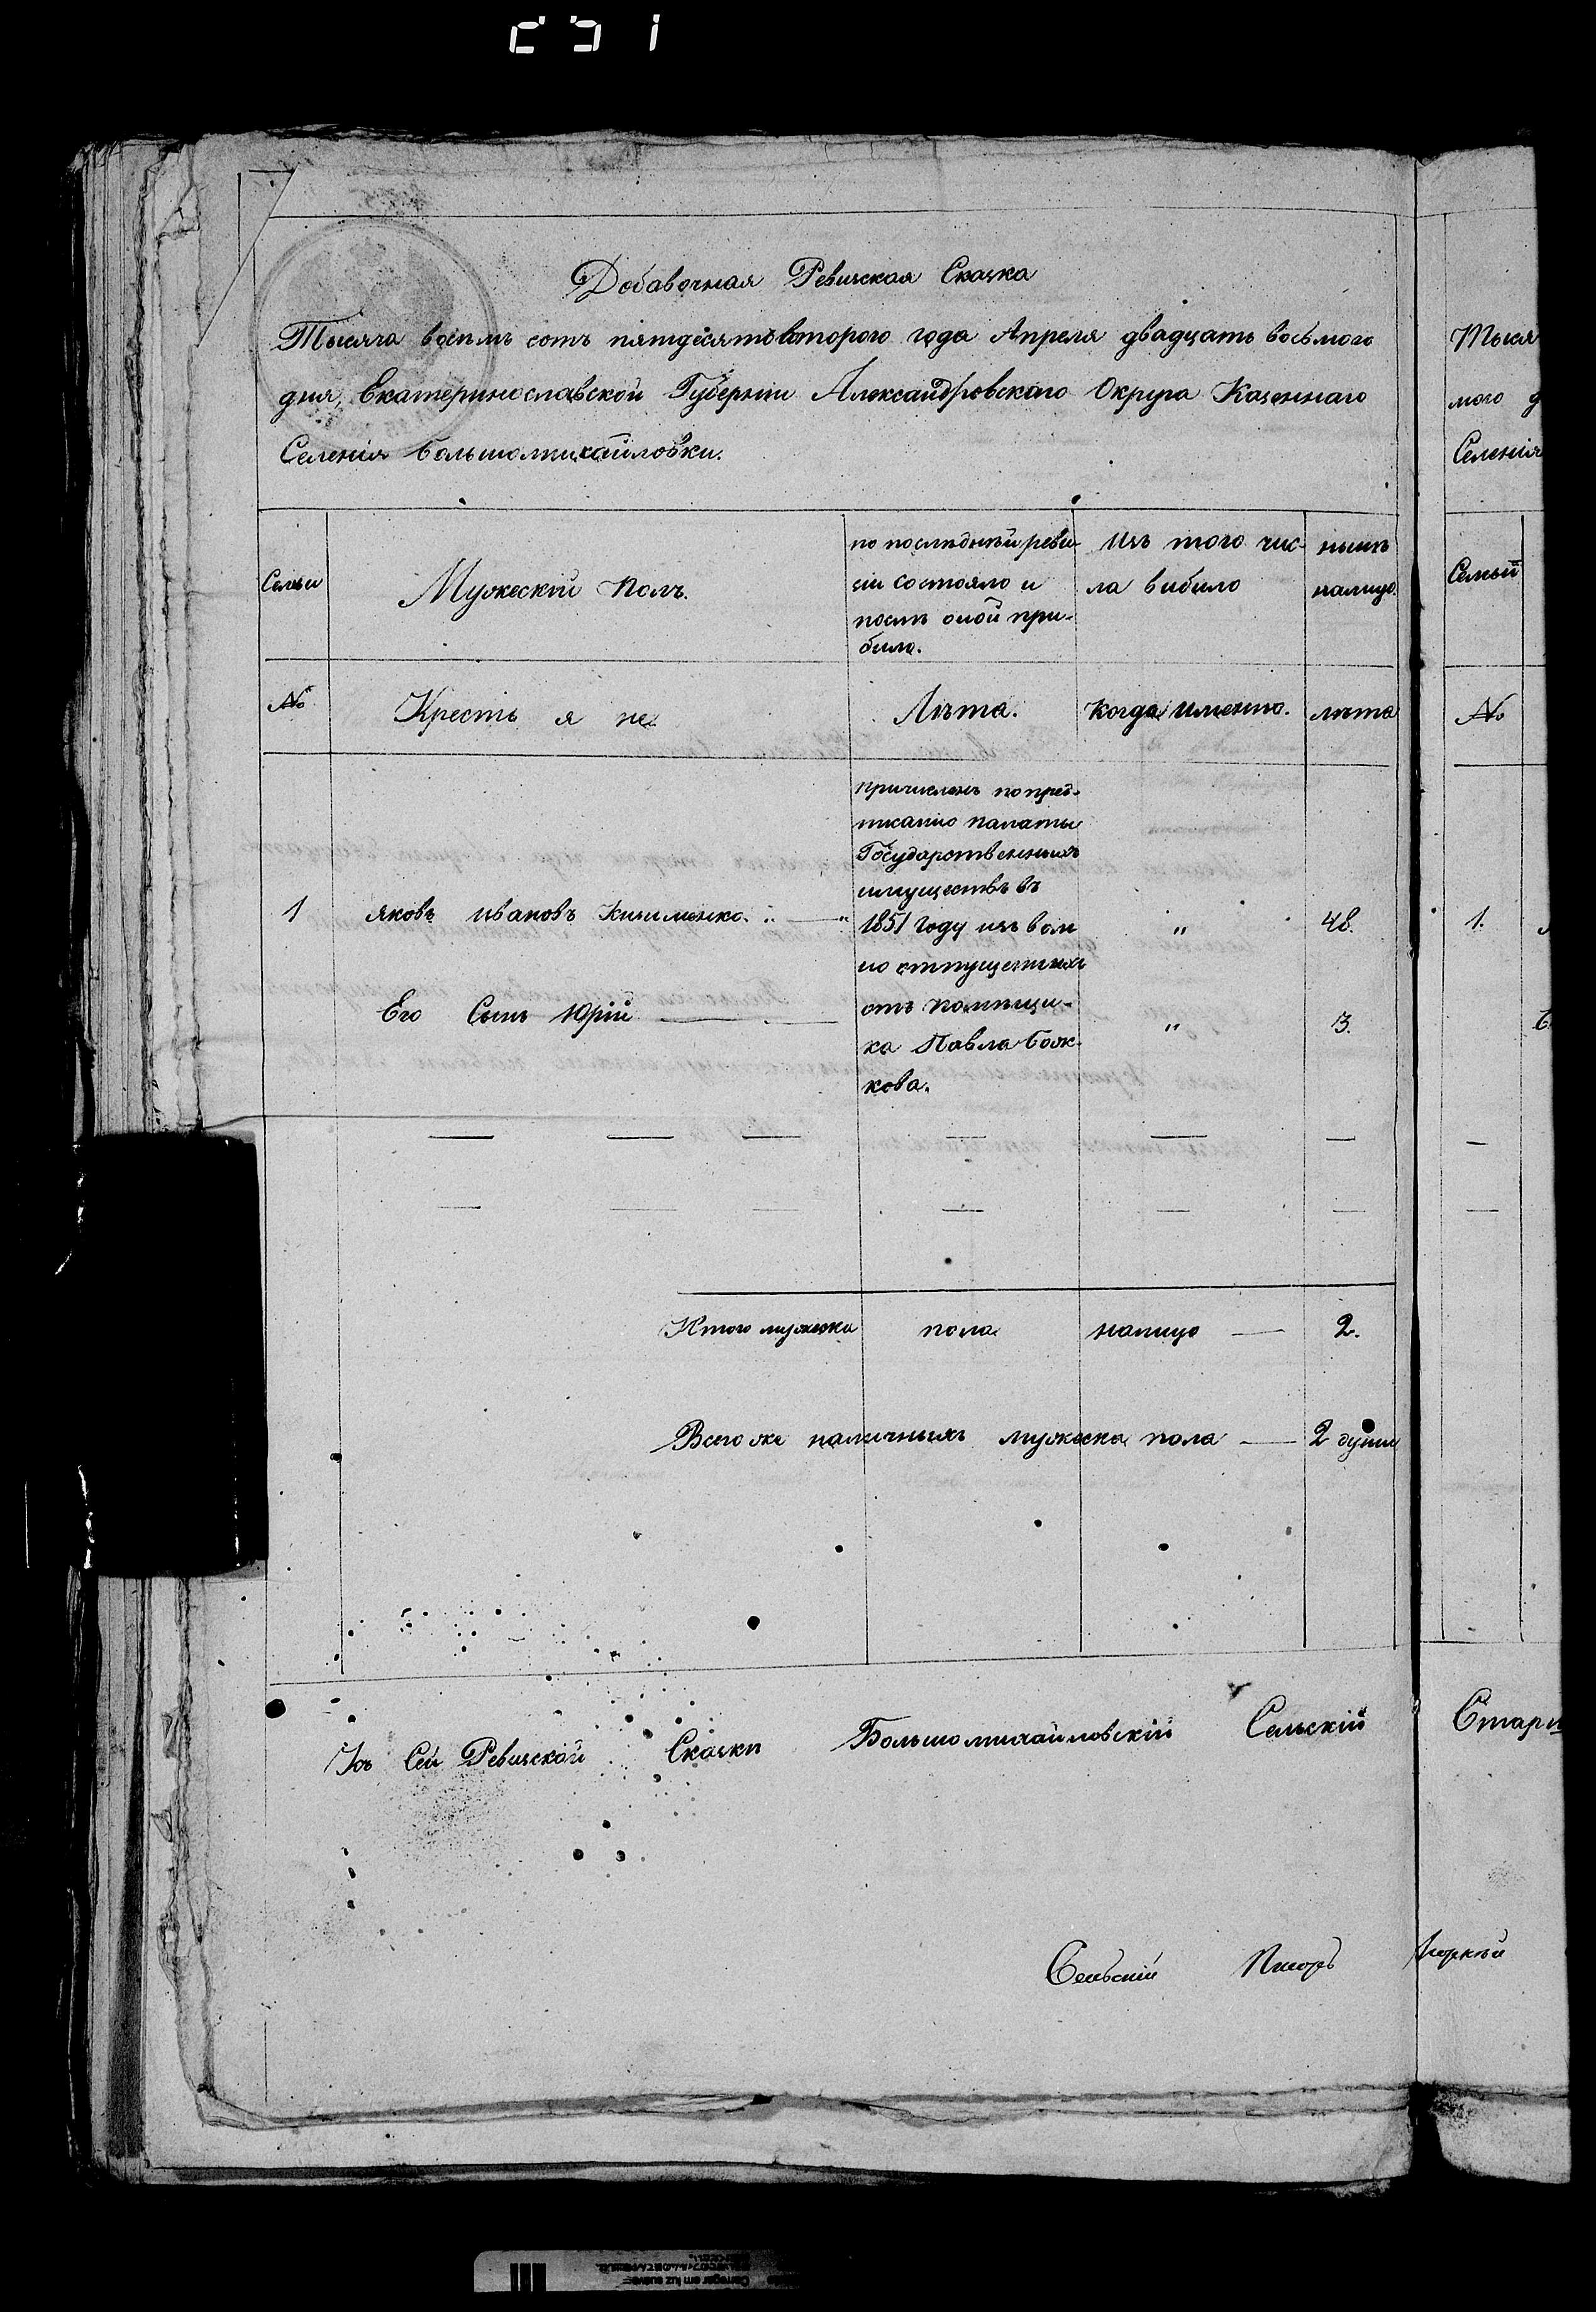 Добавочная Ревизская Сказка
Тысяча восемь сотъ пятдесятовторого года Апреля двадцать восьмого
дня, Екатеринославской Губерніи Александровскаго Округа Казеннаго
Селенія Большомихайловки.
Семьи
Мужескій Полъ.
по последнѣй реви-
зіи состояло и
послѣ оной при-
било.
Изъ того чис-
ла вибило
нынѣ
налицо.
№
Крестья не
Лѣта.
Когда именно.
лѣта
1
Яковъ Ивановъ
Его Сынъ Юрій
причисленъ попред-
писанію палаты
Государственныхъ
имуществъ въ
1851 году изъ вол
но отпущенныхъ
отъ помѣщи-
ка Павла Бож-
кова.
"
48.
"
3.
Итого мужеска пола налицо — 2.
Всего же наличныхъ мужеска пола — 2 души
Къ Сей Ревизской Сказки Большомихайловскій Сельскій
Сельскій Писарь
Тысяч
мого д
Селенія
Семьи
№
1.
Стари